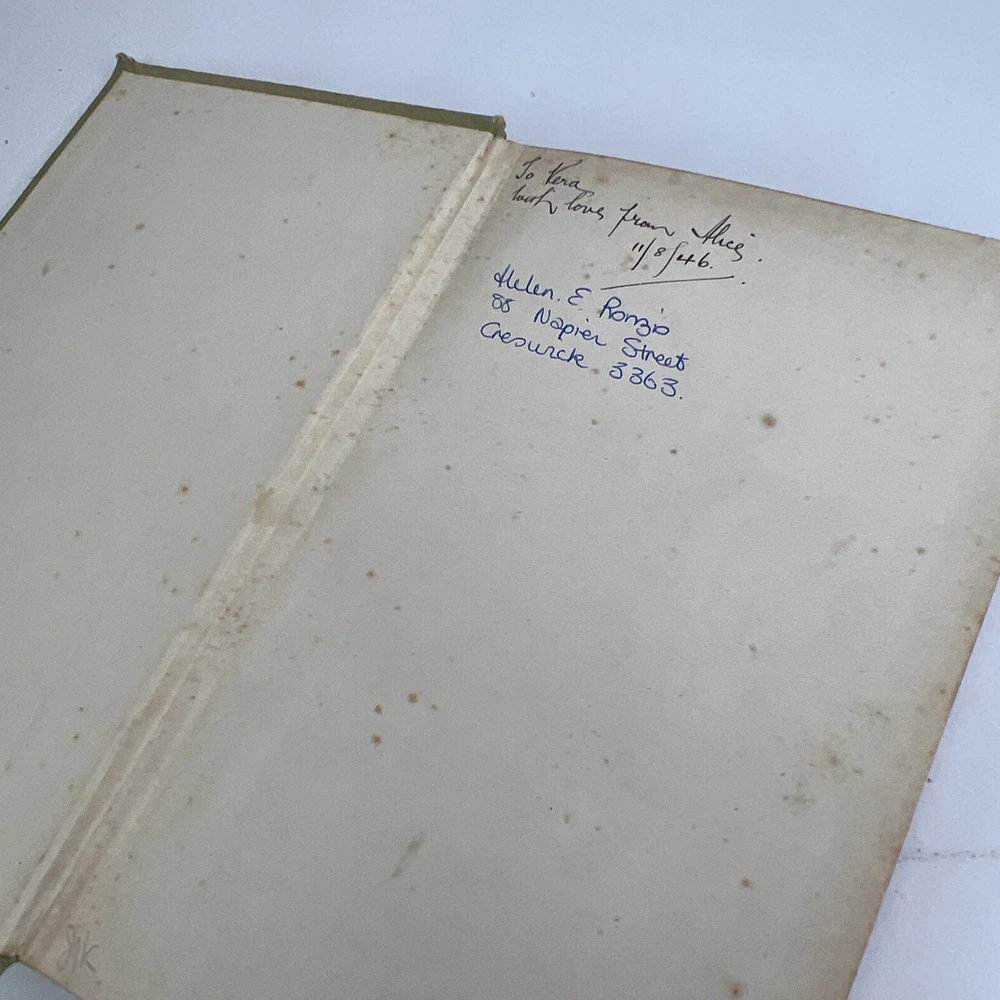 To Vera
with love from Alice.
11/8/46.
Helen. E Ronzio
88 Napier Street
Creswick 3363.